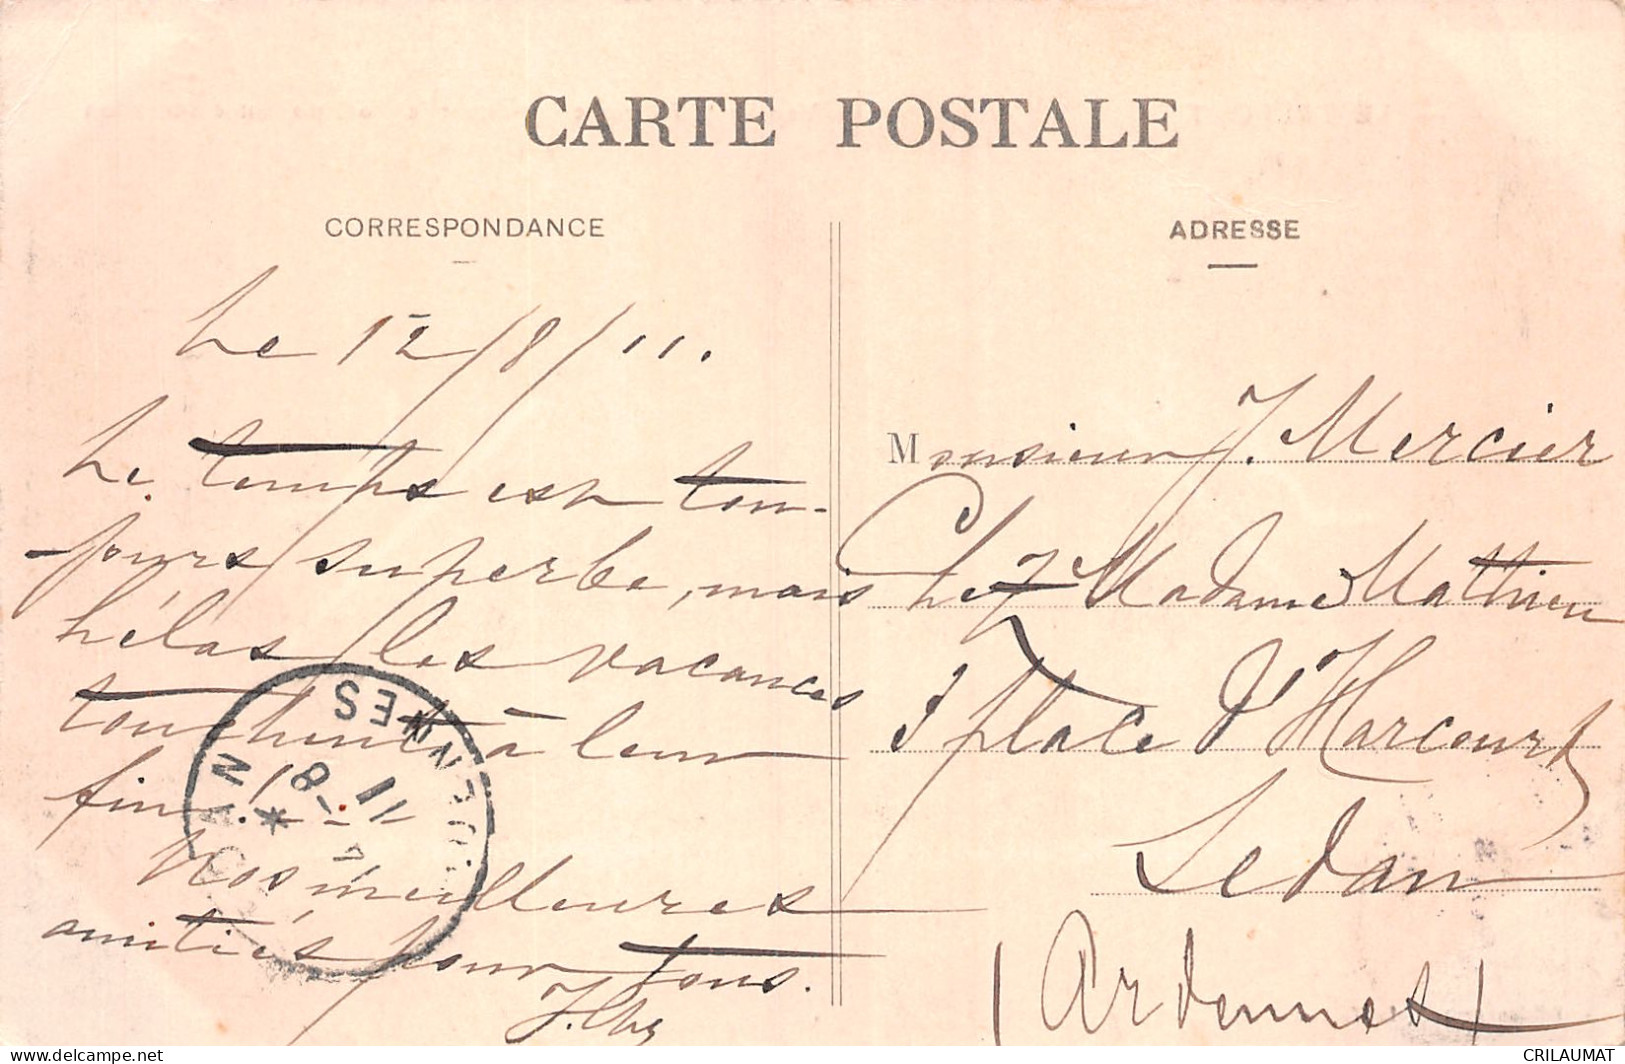 CARTE POSTALE
CORRESPONDANCE
ADRESSE
Le 12/8/11.
Le temps est tou-
jours superbe, mais
hélas les vacances
touchent à leur
fin!
Nos meilleures
amitiés pour tous.
Monsieur J. Mercier
Chez Madame Mathieu
place d'Harcourt
Sedan
(Ardennes)
SEDAN
ARDENNES
8
11
www.delcampe.net
CRILAUMAT